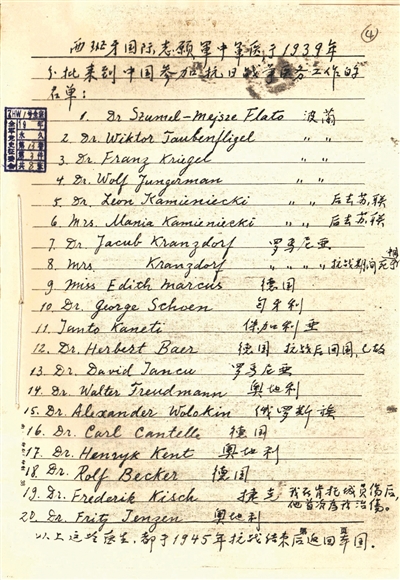 ④
西班牙国际志愿軍中軍医,于1939年
分批来到中国参加抗日战争医务工作的
名单:
1. Dr Szumel-Mejsze Flato 波蘭
2. Dr. Wiktor Taubenfligel " "
3. Dr. Franz Kriegel " "
4. Dr. Wolf Jungerman " "
5. Dr. Leon Kamieniecki " " 后去苏联
6. Mrs. Mania Kamieniecki " " 后去苏联
7. Dr. Jacub Kranzdorf 罗馬尼亚
8. Mrs. Kranzdorf " " " 抗战期间死
9 Miss Edith Marcus 德国
10 Dr. George Schoen 匈牙利
11. Ianto Kaneti 保加利亚
12. Dr. Herbert Baer 德国 抗战后回国,已故
13. Dr. David Iancu 罗馬尼亚
14. Dr. Walter Freudmann 奥地利
15. Dr. Alexander Wolokin 俄罗斯族
16. Dr. Carl Cantelle 德国
17. Dr. Henryk Kent 奥地利
18. Dr. Rolf Becker 德国
19. Dr. Frederik Kisch 捷克 我在肯托城负伤后,
他首次为我治傷。
20. Dr. Fritz Jenzen 奥地利
以上这些医生,都于1945年抗战结束后返回本国。